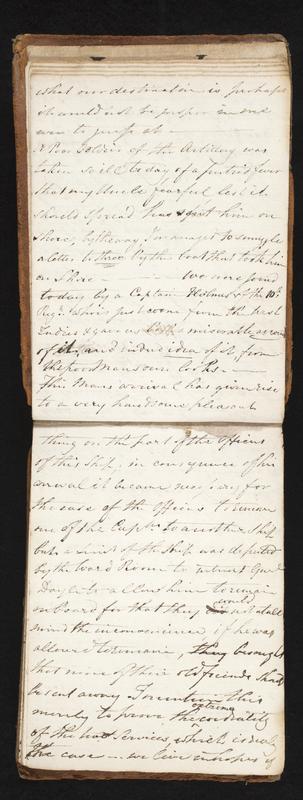 what our destination is perhaps
it would not be proper in one
even to guess at —
A Poor Soldier of the Artillery was
taken so ill today of a putrid fever
that my Uncle fearful lest it
should spread has sent him on
Shore, by the way I managed to smuggle
a letter to by the boat that took him
on Shore — we were joined
to day by a Captain Holmes of the 10th
Regt who is just come from the East
Indies & gave us both miserable account
of it, and indeed idea of it from
the poor Mans own looks. —
This Mans arrival has given rise
to a very handsome pleasant
thing on the part of the Officers
of this Ship; in consequence of his
arrival it became necessary for
the ease of the Officers to remove
one of the Captns to another Ship,
but a of the Ship was deputed
by the Ward Room to intreat Genl
Doyle to allow him to remain
on board for that they would not at all
mind the inconvenience, if he was
allowed to remain, they
that none of their old friends should
be sent away I mention this
merely to prove the extreme cordiality
of the two Services, which is really
the case — we live in hopes of